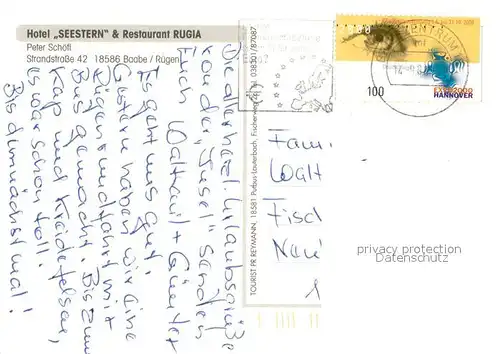 Hotel „SEESTERN" & Restaurant RUGIA
Peter Schöfl
Strandstraße 42 18586 Baabe / Rügen
Die allerherzl. Urlaubsgrüße
von der „Insel" senden
Euch
Waltraut + Günter
Es geht uns gut.
Gestern haben wir eine
Rügenrundfahrt mit
Bus gemacht. Bis zum
Kap und Kreidefelsen,
es war schon toll.
Bis demnächst mal!
TOURIST PR REYMANN, 18581 Putbus-Lauterbach, Fischerweg
Tel. 038301/87087
100
EXPO2000
HANNOVER
ZENTRUM
Fam.
Walt
Fisch
1
privacy protection
Datenschutz